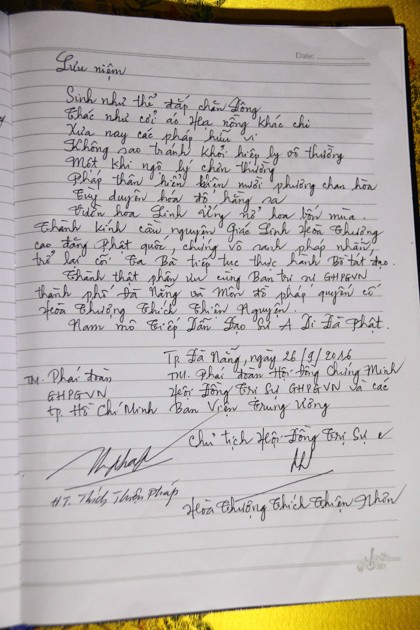 Date:
Lưu niệm
Sinh như thể đắp chăn đông
Thác như cởi áo Hạ nồng khác chi
Xưa nay các pháp hữu vi
Không sao tránh khỏi hiệp ly vô thường
Một khi ngộ lý chơn thường
Pháp thân hiển hiện mười phương chan hòa
Tùy duyên hóa độ hằng sa
Vườn hoa Linh Ứng nở hoa bốn mùa.
Thành kính cầu nguyện Giác Linh Hòa Thượng
cao đăng Phật quốc, chứng vô sanh pháp nhẫn,
trở lại cõi Ta Bà tiếp tục thực hành Bồ tát đạo.
Thành thật phân ưu cùng Ban trị sự GHPGVN
thành phố Đà Nẵng và Môn đồ pháp quyến cố
Hòa Thượng Thích Thiện Nguyện.
Nam mô Tiếp Dẫn Đạo Sư A Di Đà Phật.
Tp. Đà Nẵng, ngày 26/9/2016
TM. Phái đoàn
GHPGVN
tp. Hồ Chí Minh
TM. Phái đoàn Hội Đồng Chứng Minh
Hội Đồng Trị Sự GHPGVN và các
Ban Viện Trung Ương
Chủ tịch Hội Đồng Trị Sự
H.T. Thích Thiện Pháp
Hòa Thượng Thích Thiện Nhơn